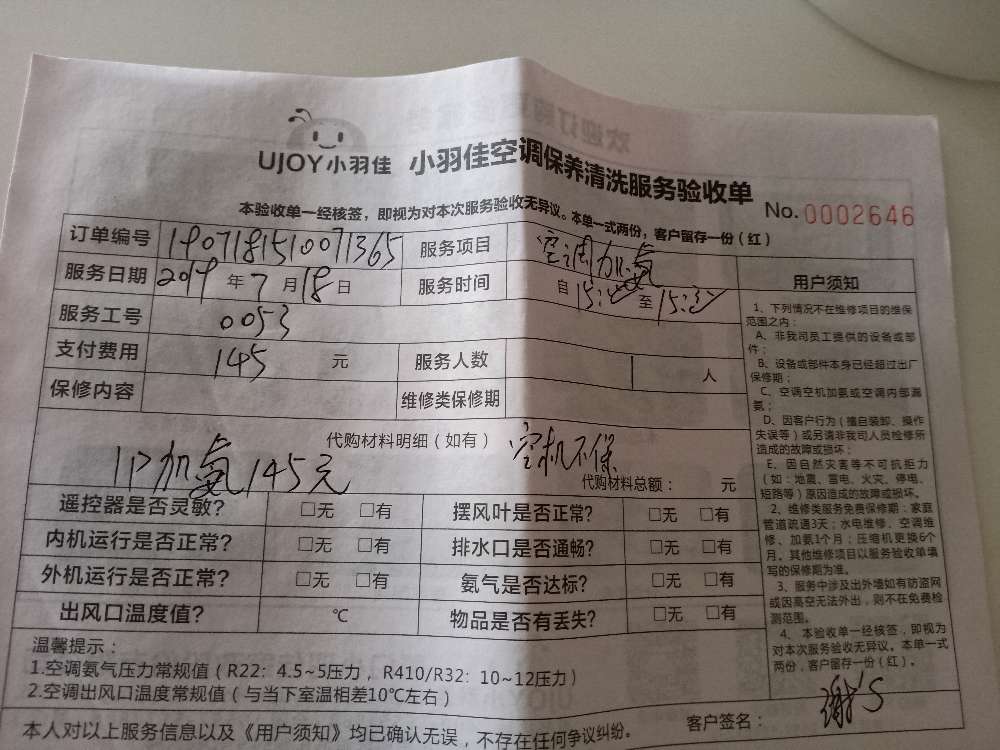 UJOY小羽佳 小羽佳空调保养清洗服务验收单
No.0002646
本验收单一经核签，即视为对本次服务验收无异议。本单一式两份，客户留存一份（红）
订单编号 190718151007136​5 服务项目 空调加氨
服务日期 2019 年 7 月 18 日 服务时间 自 15: 至 15:
服务工号 0053
支付费用 145 元 服务人数 1 人
保修内容 维修类保修期
代购材料明细（如有） 空机不保
1P加氨145元 代购材料总额： 元
遥控器是否灵敏? □无 □有 摆风叶是否正常? □无 □有
内机运行是否正常? □无 □有 排水口是否通畅? □无 □有
外机运行是否正常? □无 □有 氨气是否达标? □无 □有
出风口温度值? ℃ 物品是否有丢失? □无 □有
温馨提示：
1.空调氨气压力常规值（R22：4.5~5压力，R410/R32：10~12压力）
2.空调出风口温度常规值（与当下室温相差10℃左右）
本人对以上服务信息以及《用户须知》均已确认无误，不存在任何争议纠纷。
客户签名：
用户须知
1、下列情况不在维修项目的维保
范围之内：
A、非我司员工提供的设备或部
件；
B、设备或部件本身已经超过出厂
保修期；
C、空调空机加氨或空调内部漏
氨；
D、因客户行为（擅自装卸、操作
失误等）或另请非我司人员检修所
造成的故障或损坏；
E、因自然灾害等不可抗拒力
（如：地震、雷电、火灾、停电、
短路等）原因造成的故障或损坏。
2、维修类服务免费保修期：家庭
管道疏通3天；水电维修、空调维
修、加氨1个月；压缩机更换6个
月。其他维修项目以服务验收单填
写的保修期为准。
3、服务中涉及出外墙如有防盗网
或因高空无法外出，则不在免费检
测范围。
4、本验收单一经核签，即视为
对本次服务验收无异议。本单一式
两份，客户留存一份（红）。